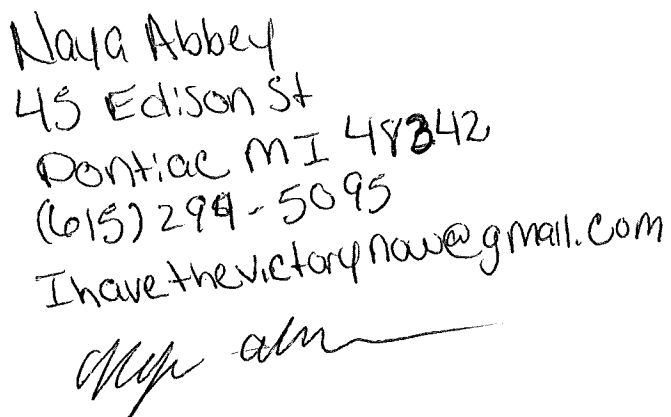 Naya Abbey
45 Edison St
Pontiac MI 48342
(615) 294-5095
Ihavethevictorynow@gmail.com